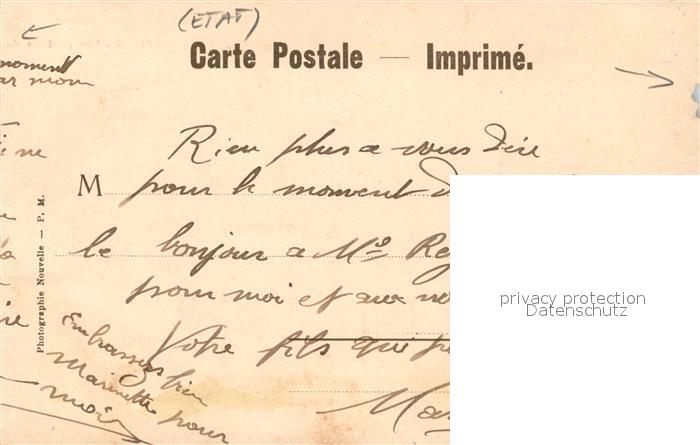 (ETAT)
Carte Postale — Imprimé.
moment
ar mom
ne
Rien plus a vous Dire
M pour le moment
le bonjour a Mo
pour moi et aux
Votre fils qui
Embrasser bien
Marinette pour
moi
Photographie Nouvelle — P. M.
privacy protection
Datenschutz